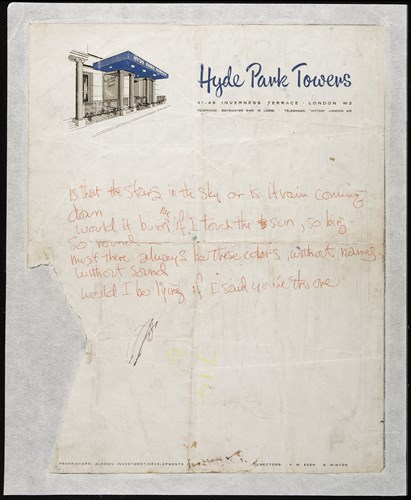 HYDE PARK
Hyde Park Towers
41-49 INVERNESS TERRACE · LONDON W2
TELEPHONE: BAYSWATER TELEGRAMS: LONDON W2
Is that the stars in the sky or is it rain coming
down
my
would it burn if I touch the sun, so big
so round
must there always be these colors, without names
without sound
would I be lying if I said you're the one
PROPRIETORS: INVESTMENT/DEVELOPMENTS DIRECTORS: